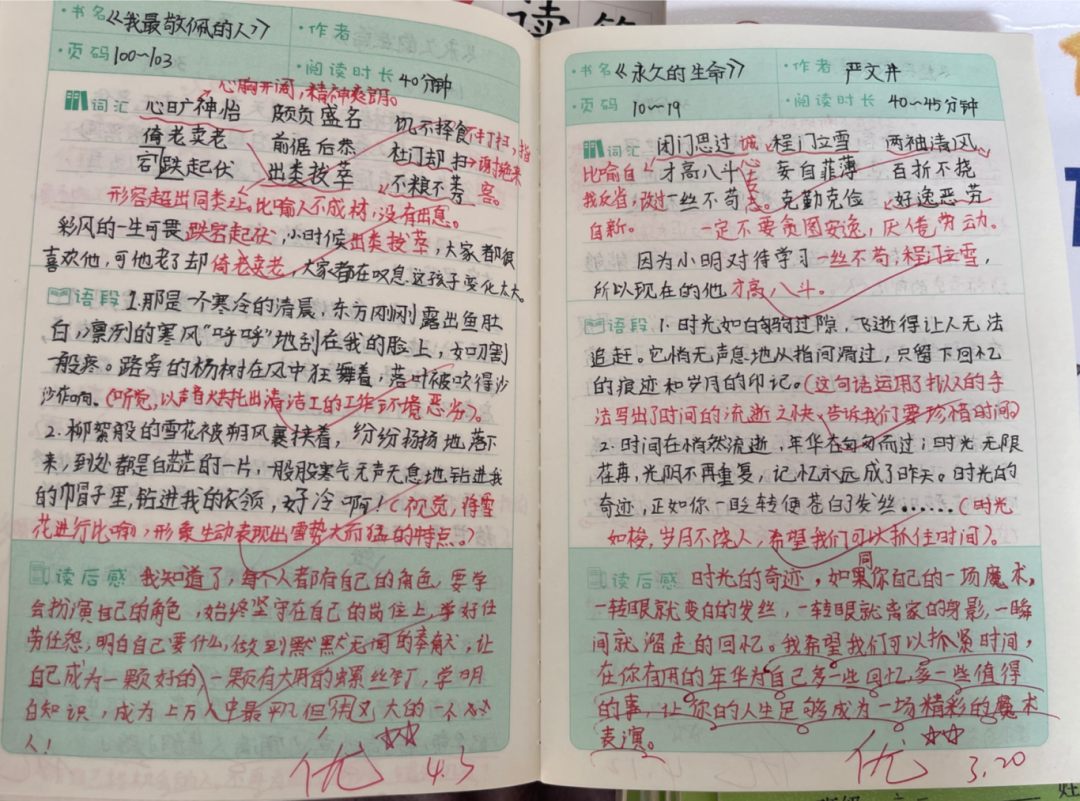 书名《我最敬佩的人》 作者
页码 100~103 阅读时长 40分钟
心胸开阔，精神爽朗。
词汇 心旷神怡 颇负盛名 饥不择食
倚老卖老 前倨后恭 杜门却扫
客。
跌宕起伏 出类拔萃 不稂不莠
形容超出同类之上。比喻人不成材，没有出息。
彩风的一生可贯跌宕起伏，小时候出类拔萃，大家都很
喜欢他，可他老了却倚老卖老，大家都在叹息这孩子变化太大。
语段 1.那是一个寒冷的清晨，东方刚刚露出鱼肚
白，凛冽的寒风“呼呼”地刮在我的脸上，如刀割
般疼。路旁的杨树在风中狂舞着，落叶被吹得沙
沙作响。(听觉，以声音来衬托出清洁工的工作环境恶劣)。
2.柳絮般的雪花被朔风裹挟着，纷纷扬扬地落下
来，到处都是白茫茫的一片，一股股寒气无声无息地钻进我
的帽子里，钻进我的衣领，好冷啊！(视觉，将雪
花进行比喻，形象生动表现出雪势大而猛的特点。)
读后感 我知道了，每个人都有自己的角色，要学
会扮演自己的角色，始终坚守在自己的岗位上，学好任
劳任怨，明白自己要什么，做到默默无闻的奉献，让
自己成为一颗好的，一颗有大用的螺丝钉，学明
白知识，成为上万人中最平凡但用又大的一个
人！
优 4.5
读
书名《永久的生命》 作者 严文井
页码 10~19 阅读时长 40~45分钟
词汇 闭门思过 程门立雪 两袖清风
比喻自 才高八斗 妄自菲薄 百折不挠
我反省，改过 一丝不苟 克勤克俭 好逸恶劳
自新。 一定不要贪图安逸，厌倦劳动。
因为小明对待学习一丝不苟，程门立雪，
所以现在的他才高八斗。
语段 1.时光如白驹过隙，飞逝得让人无法
追赶。它悄无声息地从指间滑过，只留下回忆
的痕迹和岁月的印记。(这句话运用了拟人的手
法写出了时间的流逝之快，告诉我们要珍惜时间)
2.时间在悄然流逝，年华在匆匆而过；时光无限
在再，光阴不再重复，记忆永远成了昨天。时光的
奇迹，正如你一眨转便苍白了发丝……(时光
如梭，岁月不饶人，希望我们可以抓住时间)。
读后感 时光的奇迹，如同你自己的一场魔术，
一转眼就变白的发丝，一转眼就离家的身影，一瞬
间就溜走的回忆。我希望我们可以抓紧时间，
在你有用的年华为自己多一些回忆，多一些值得
的事，让你的人生足够成为一场精彩的魔术
表演。
优 3.20